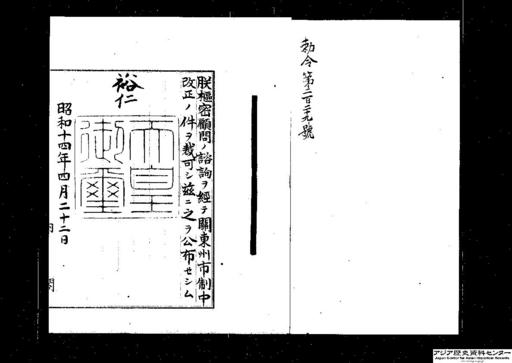 勅令第二百二十九號
朕樞密顧問ノ諮詢ヲ經テ關東州市制中
改正ノ件ヲ裁可シ茲ニ之ヲ公布セシム
裕仁
天皇御璽
昭和十四年四月二十二日
アジア歴史資料センター
Japan Center for Asian Historical Records